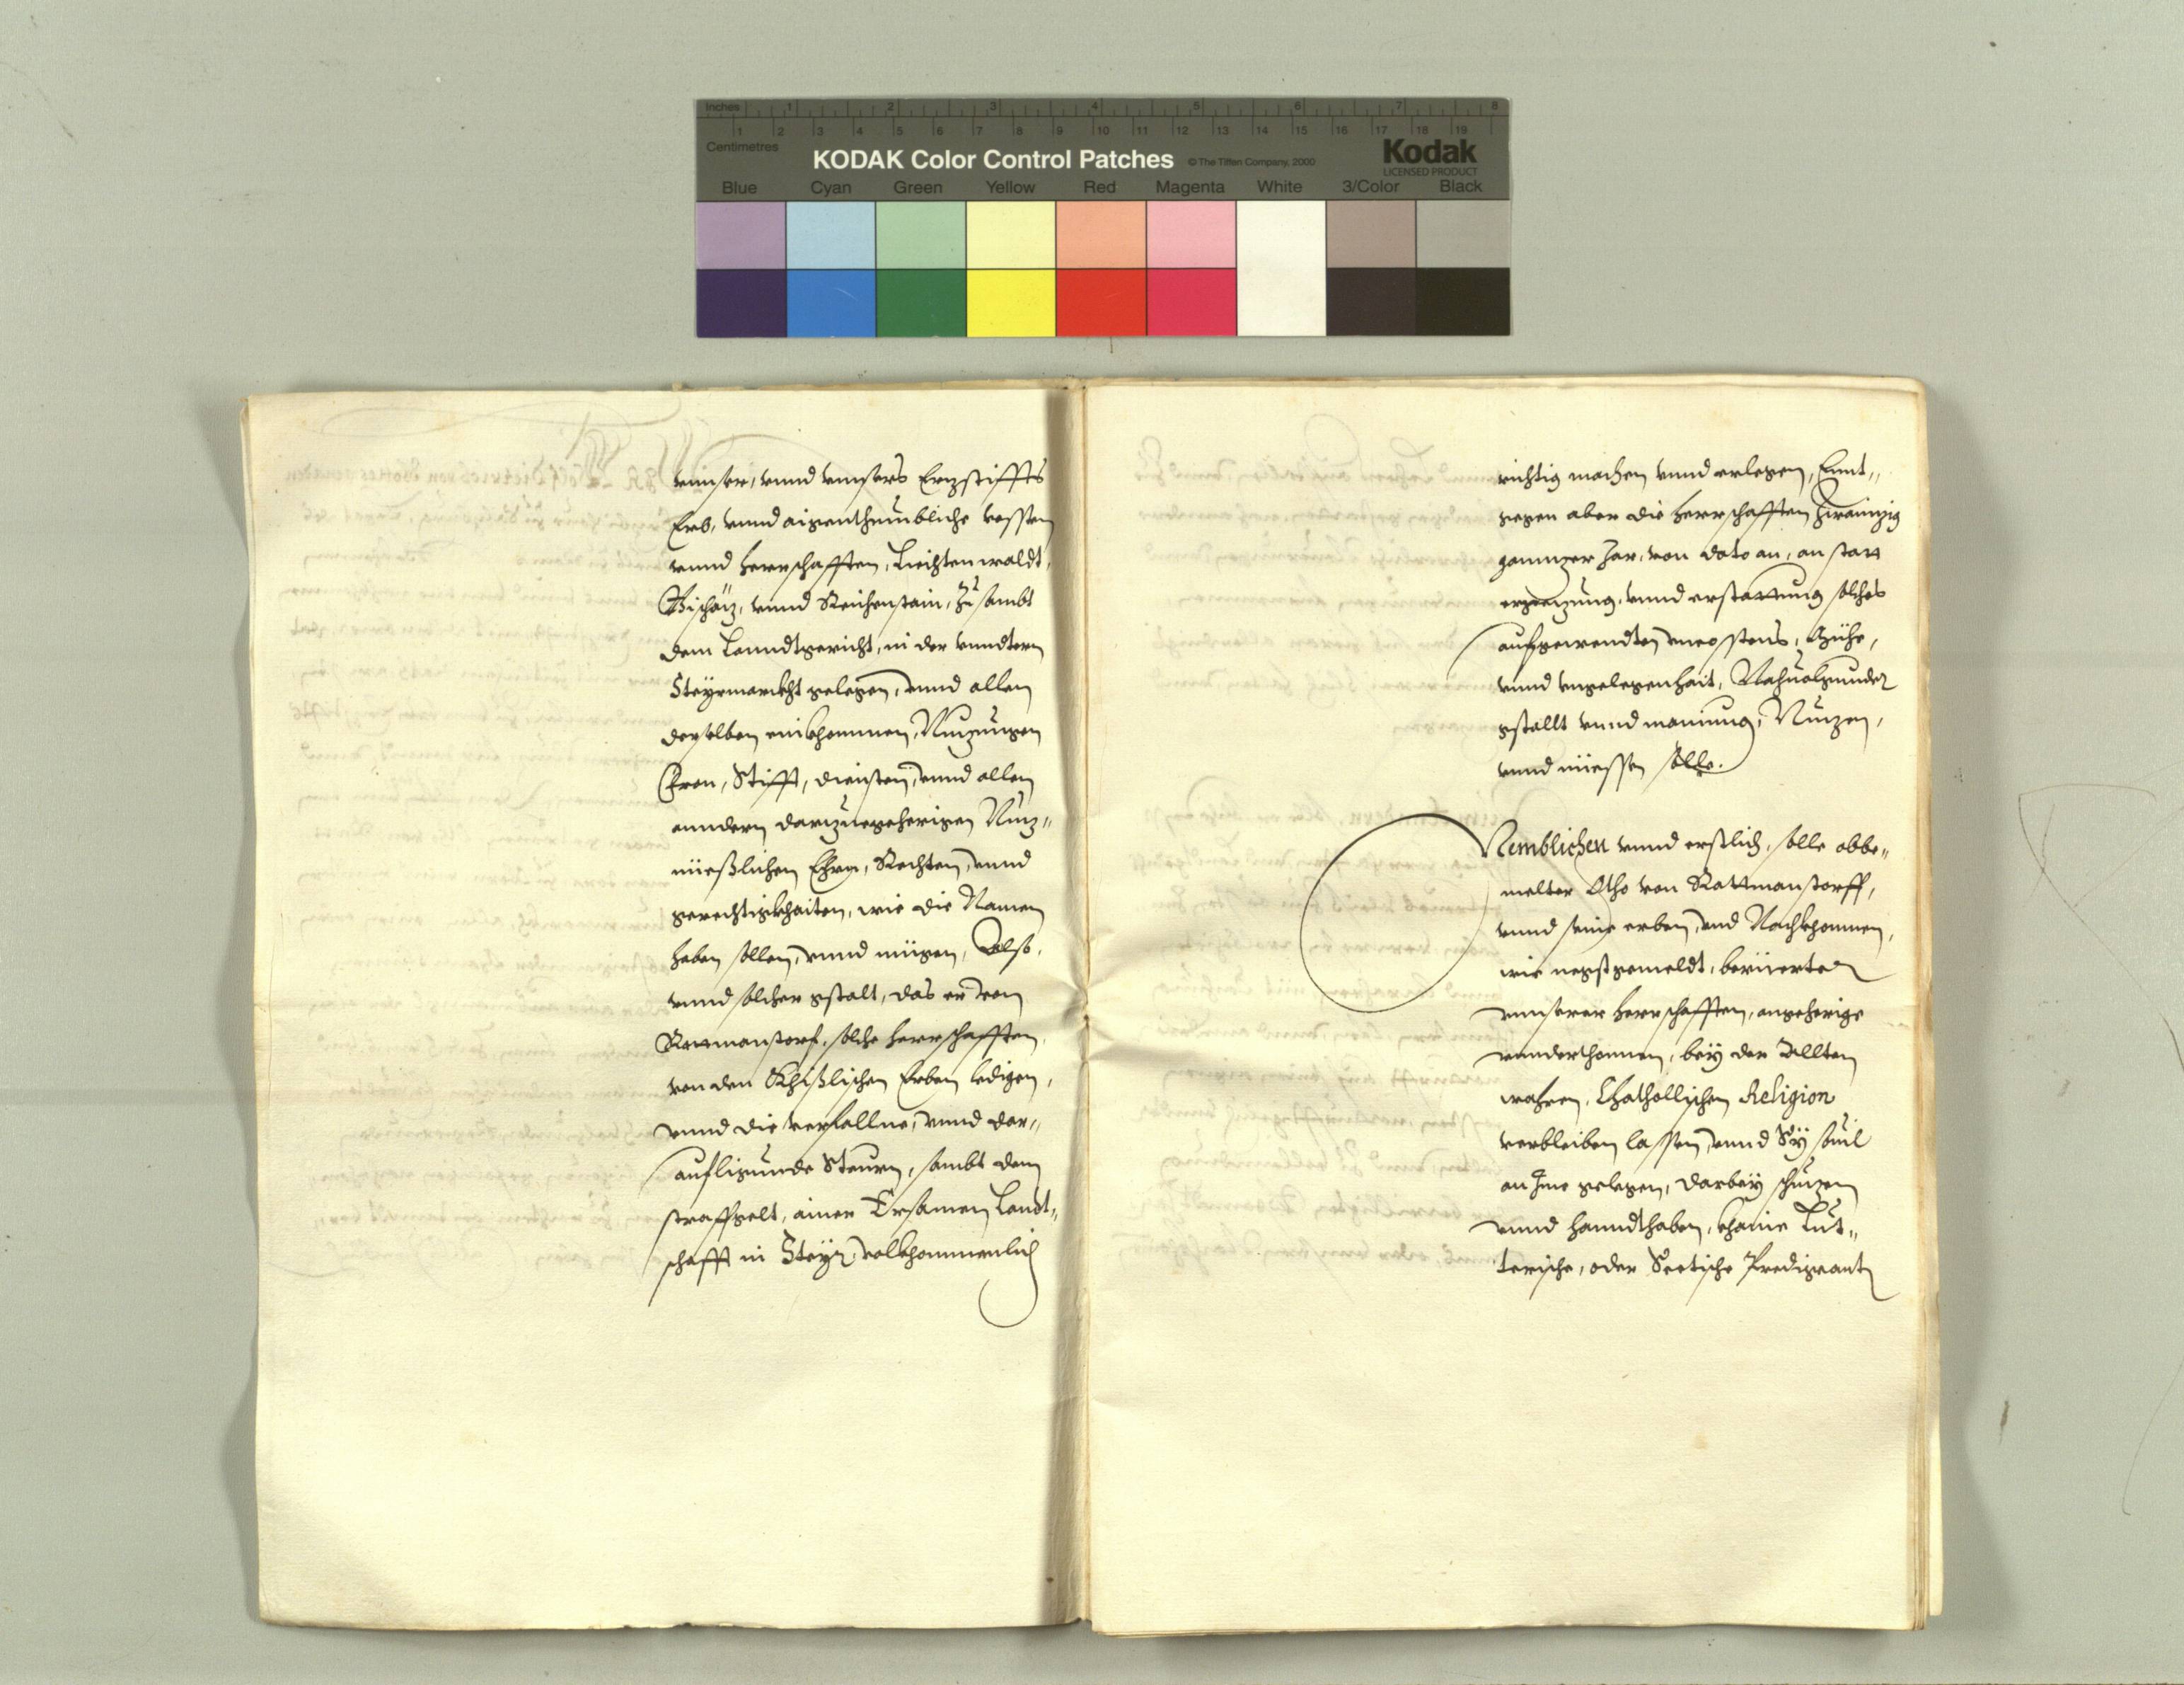 Inches 1 2 3 4 5 6 7 8
1 2 3 4 5 6 7 8 9 10 11 12 13 14 15 16 17 18 19
Centimetres
KODAK Color Control Patches © The Tiffen Company, 2000 Kodak
LICENSED PRODUCT
Blue Cyan Green Yellow Red Magenta White 3/Color Black
vnnser, vnnd vnnsers Erzstiffts
Erb, vnnd aigenthumbliche vessten
vnnd herrschafften, Liechtenwaldt,
vnnd Reichenstain, zu sambt
dem Lanndtgericht, in der vnndtern
Steyrmarckht gelegen, vnnd allen
derselben einkhommen, Nuzungen
Stifft, diensten, vnnd allen
anndern darzuegeherigen Nuz„
nießlichen Ehren, Rechten, vnnd
gerechtigkhaiten, wie die Namen
haben sollen, vnnd mügen, Also,
vnnd solcher gstalt, das er von
Rattmanstorf, solche herrschafften,
von den Khißlischen Erben ledigen,
vnnd die verfallne, vnnd dar„
aufligunde Steurn, sambt dem
straffgelt, ainer Ersamen Landt„
schafft in Steyr, volkhommenlich
richtig machen vnnd erlegen, Ennt„
gegen aber die herrschafften zwainzig
gannzer Jar, von dato an, an statt
ergezung, vnnd erstattung solches
aufgewendten vncosstens, Mühe,
vnnd vngelegenhait, Nachuolgunder
gstallt vnnd mainung, Nuzen,
vnnd niessen solle.
Nemblichen vnnd erstlich, solle obbe„
melter Otho von Rattmanstorff,
vnnd seine erben, vnd Nachkhommen,
wie negstgemeldt, berüerter
vnnserer herrschafften, angeherige
vnnderthonnen, bey der Allten
wahren, Chatholischen Religion
verbleiben lassen, vnnd Sy souil
an Ime gelegen, darbey schuzen
vnnd hanndthaben, khaine Lut„
terische, oder Sectische Predigcant